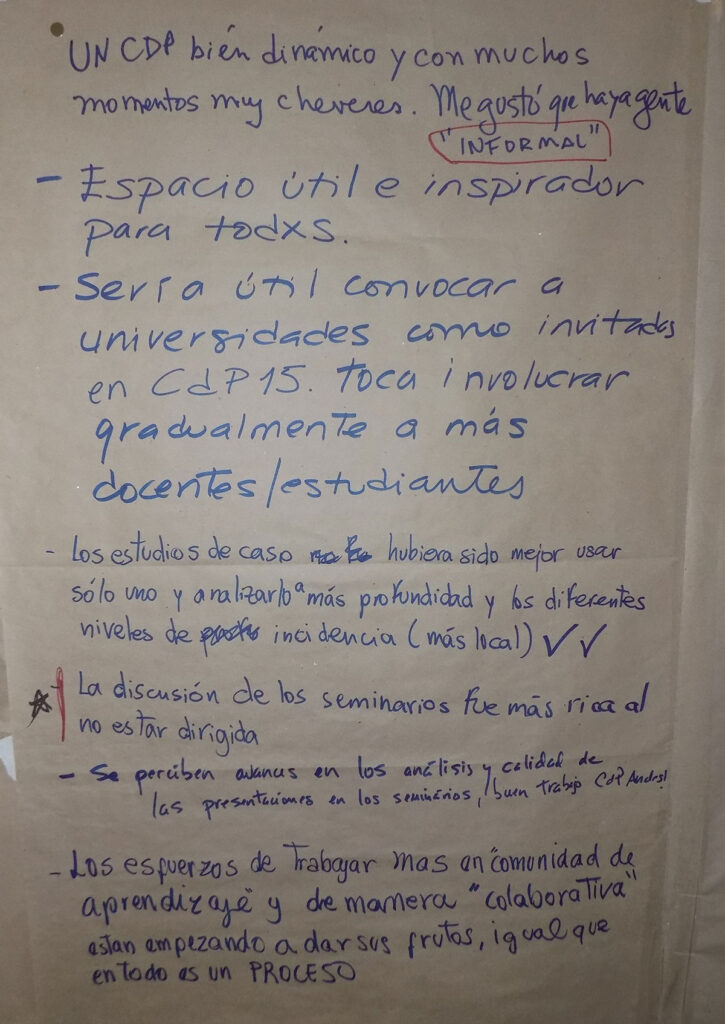 UN CDP bién dinámico y con muchos
momentos muy cheveres. Me gustó que haya gente
"INFORMAL"
- Espacio útil e inspirador
para todxs.
- Sería útil convocar a
universidades como invitadas
en CdP15. Toca involucrar
gradualmente a más
docentes/estudiantes
- Los estudios de caso hubiera sido mejor usar
sólo uno y analizarlo a más profundidad y los diferentes
niveles de incidencia (más local) ✓✓
- La discusión de los seminarios fue más rica al
no estar dirigida
- Se perciben avances en los análisis y calidad de
las presentaciones en los seminários, buen trabajo CdP Andes!
- Los esfuerzos de Trabajar mas en "comunidad de
aprendizaje" y de manera "colaborativa"
estan empezando a dar sus frutos, igual que
en todo es un PROCESO